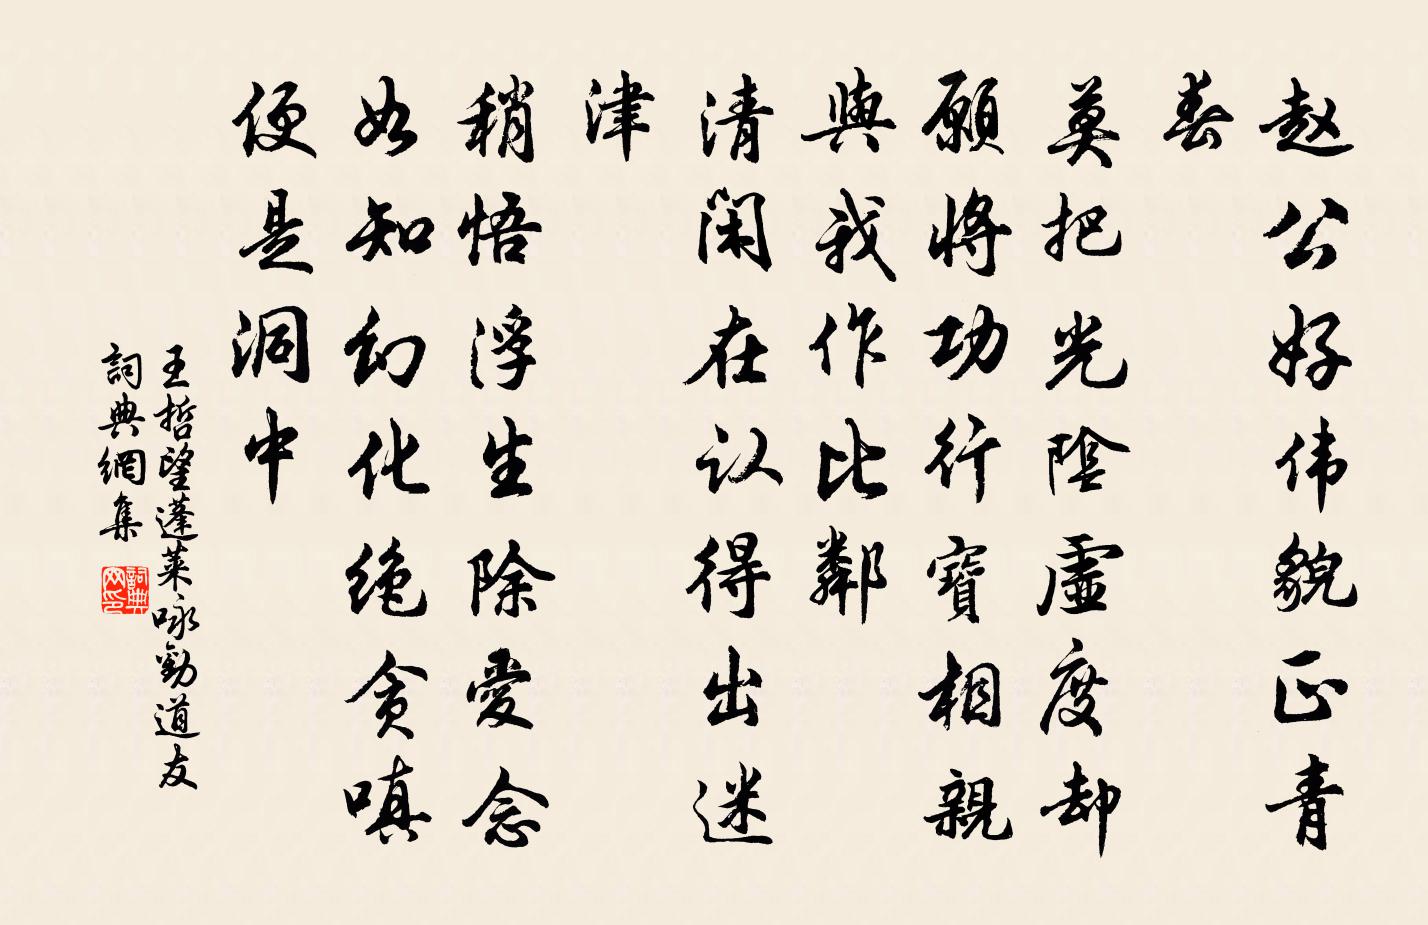 赵公好伟貌正青
春
莫把光陰虛度却
願將功行寶相親
與我作比鄰
清閑在认得出迷
津
稍悟浮生除愛念
如知幻化绝贪嗔
便是洞中
王哲望蓬莱咏勸道友
詞典網集
詞典
网印